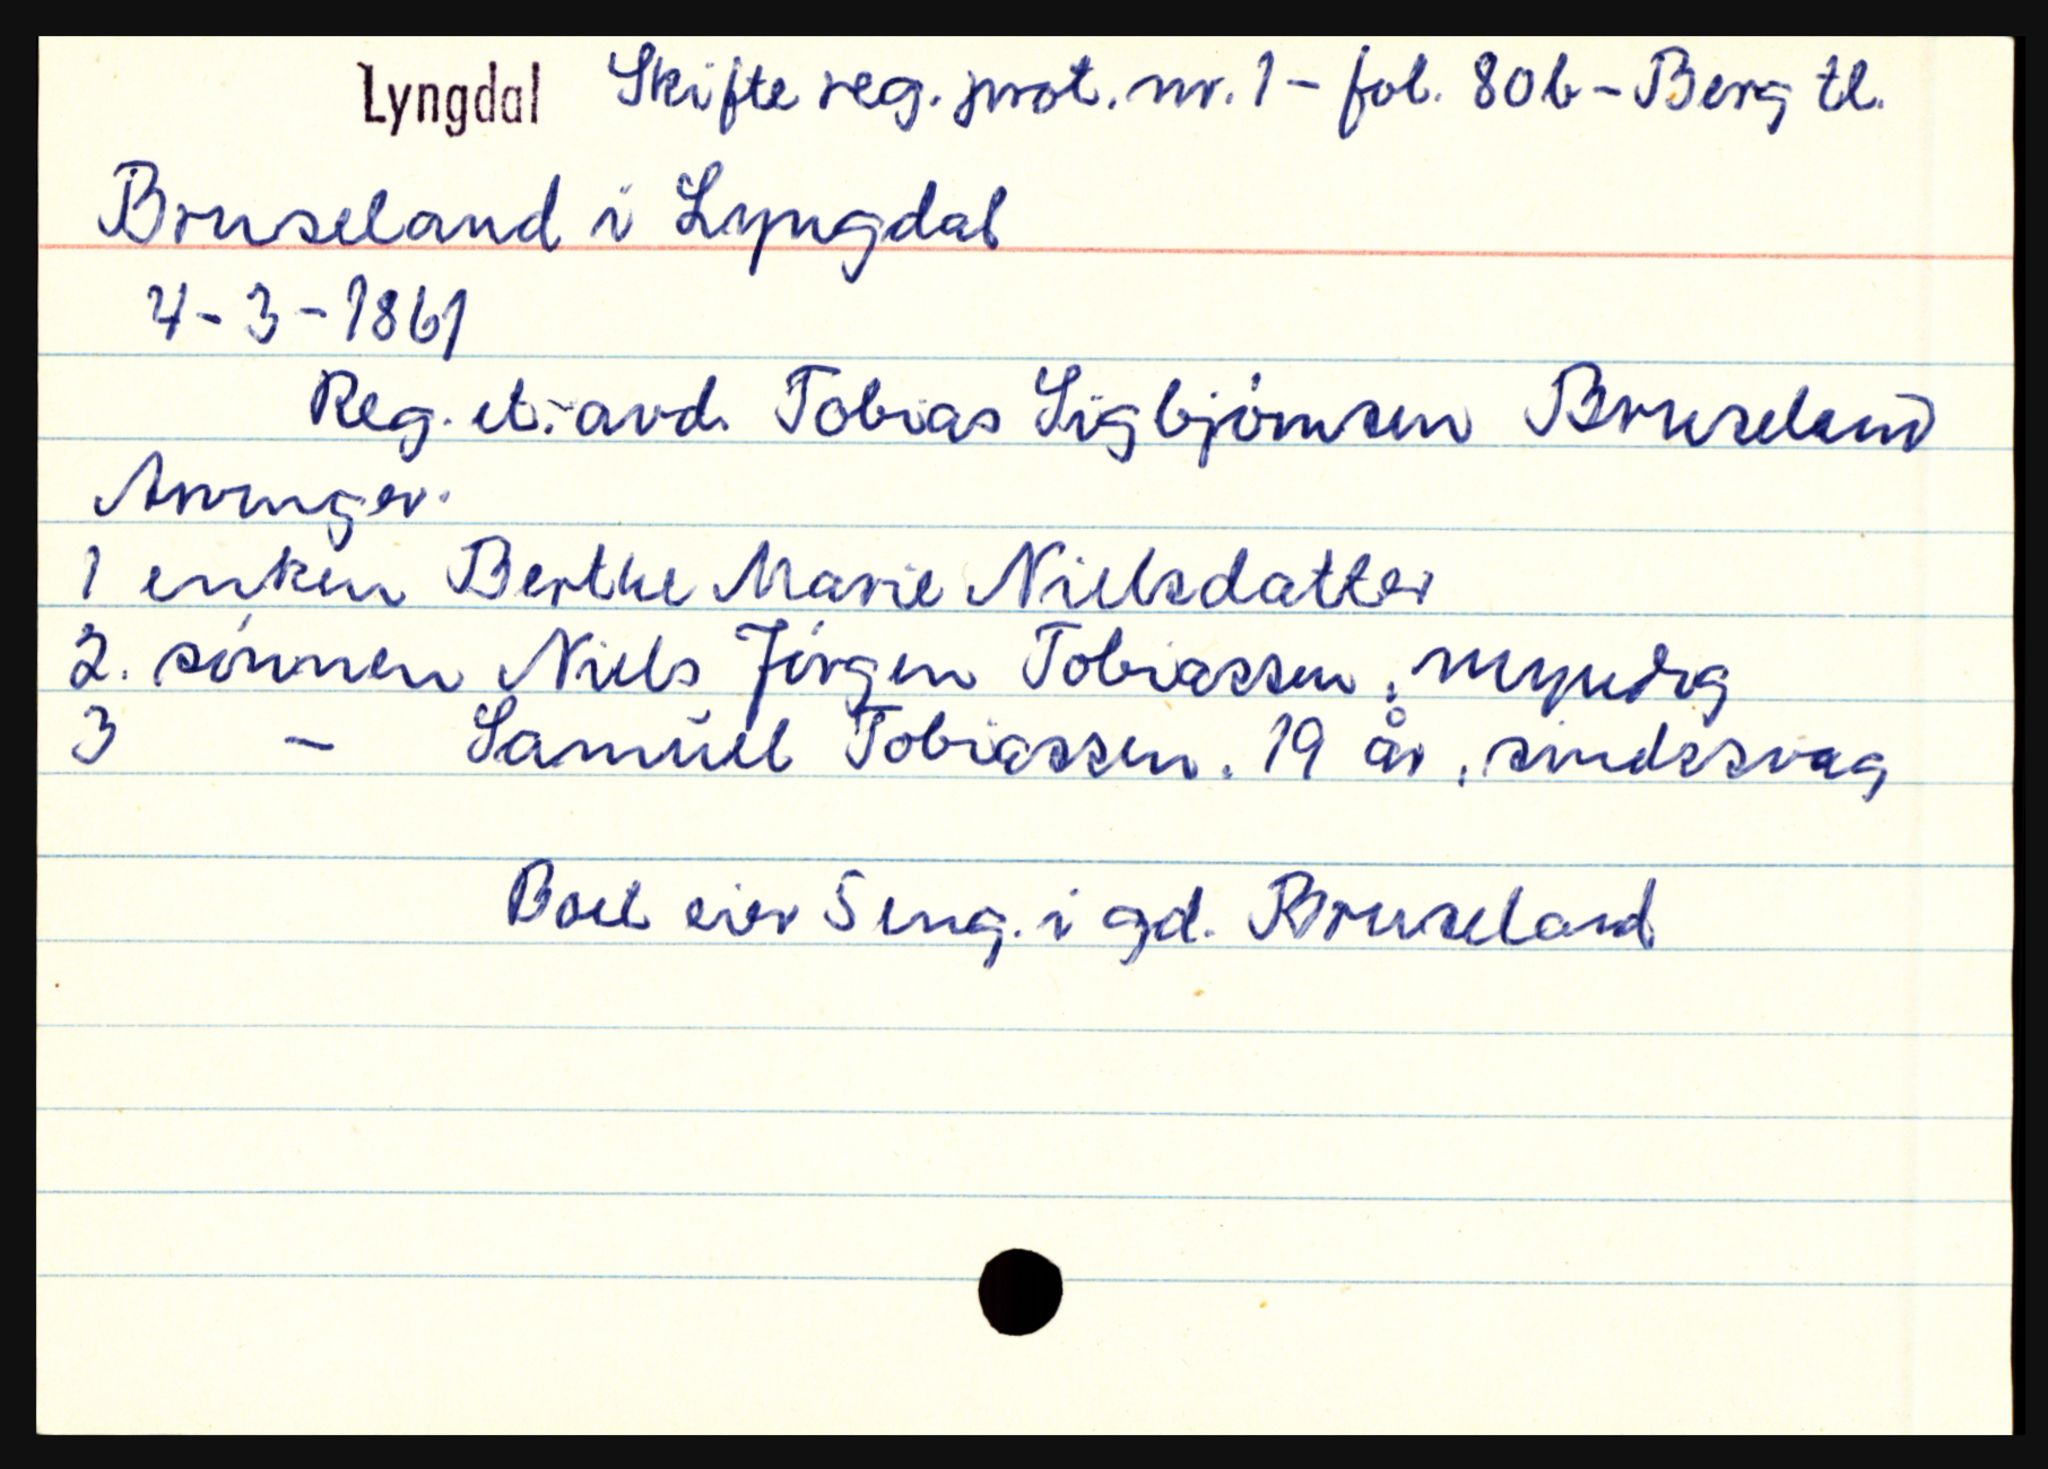 Lyngdal Skifte reg. prot. nr. 1 - fol. 80b - Berg tl.
Bruseland i Lyngdal
4-3-1861
Reg. et. avd. Tobias Sigbjörnsen Bruseland
Arvinger.
1 enken Berthe Marie Nielsdatter
2. sönnen Niels Jörgen Tobiassen, myndig
3 - Samuel Tobiassen. 19 år, sindssvag
Boet eier 5 eng. i gd. Bruseland